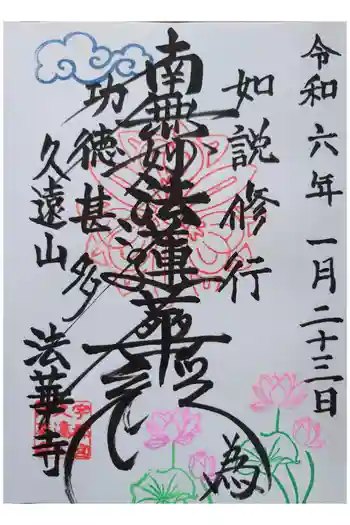 令和六年一月二十三日
如説修行
南無妙法蓮華経
為
功徳甚多
久遠山
法華寺